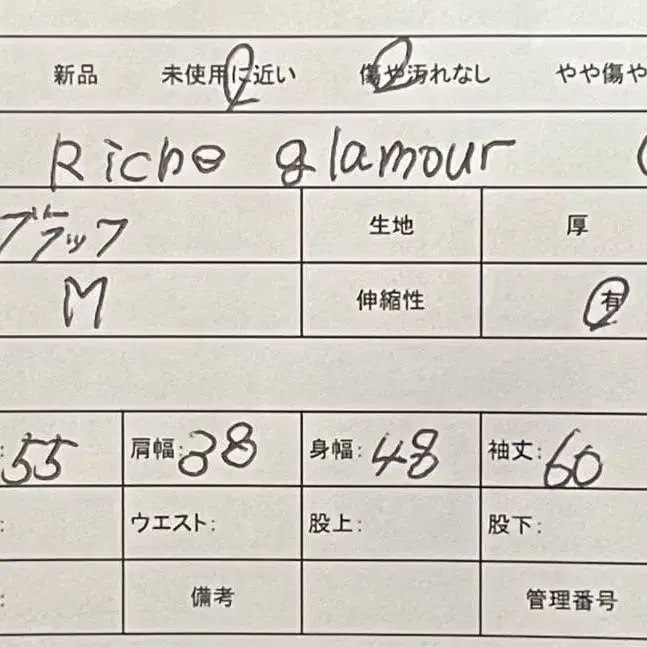 新品 未使用に近い 傷や汚れなし やや傷や
Riche glamour (
ブラック 生地 厚
M 伸縮性 有
:55 肩幅:38 身幅:48 袖丈:60
: ウエスト: 股上: 股下:
: 備考 管理番号